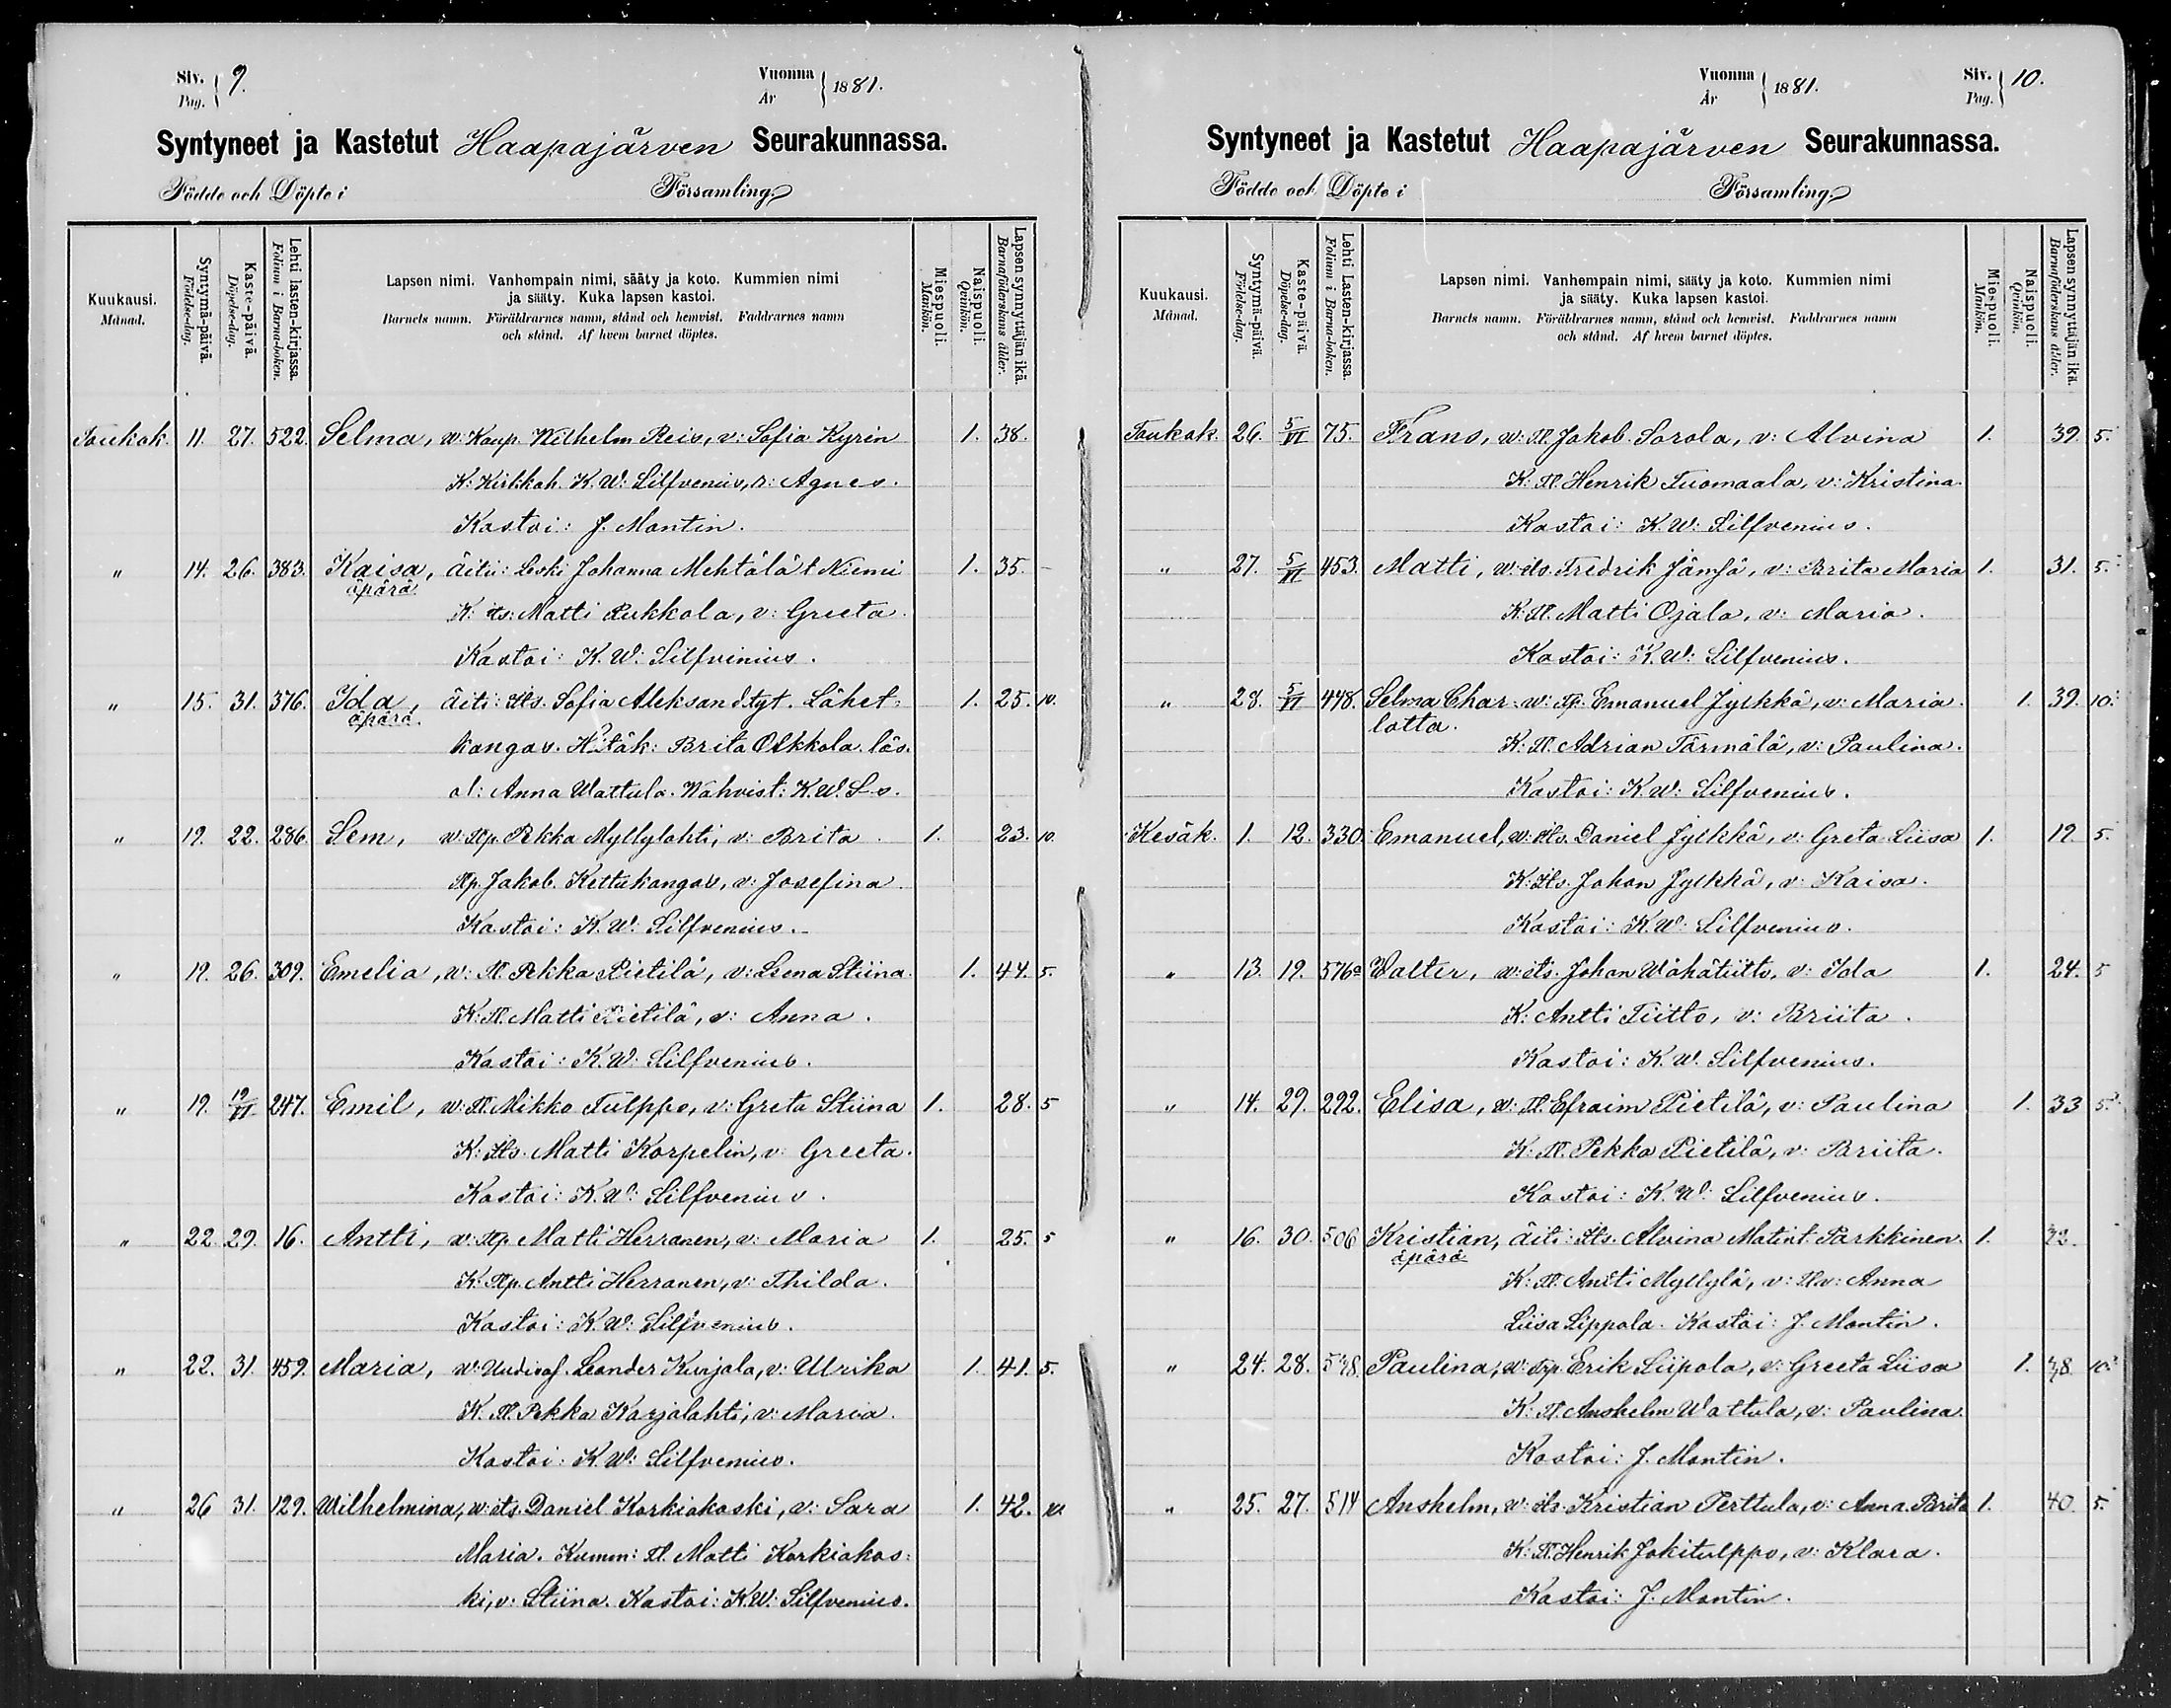 Siv. Pag. 9.
Vuonna År 1881.
Syntyneet ja Kastetut Haapajärven Seurakunnassa.
Födde och Döpte i Församling.
Kuukausi. Månad.
Syntymä-päivä. Födelse-dag.
Kaste-päivä. Döpelse-dag.
Lehti lasten-kirjassa. Folium i Barna-boken.
Lapsen nimi. Vanhempain nimi, sääty ja koto. Kummien nimi
ja sääty. Kuka lapsen kastoi.
Barnets namn. Föräldrarnes namn, stånd och hemvist. Faddrarnes namn
och stånd. Af hvem barnet döptes.
Miespuoli. Mankön.
Naispuoli. Qvinkön.
Lapsen synnyttäjän ikä. Barnaföderskans ålder.
Toukok. 11. 27. 522. Selma, w: Kaup. Wilhelm Reis, v: Sofia Kyrin 1. 38.
K: Kirkkoh. K. W: Silfvenius, r: Agnes.
Kastoi: J. Montin.
" 14. 26. 383. Kaisa, äiti: Leski Johanna Mehtälät Niemi 1. 35.
äpärä.
K: its: Matti Pukkola, v: Greeta.
Kastoi: K. W: Silfvenius.
" 15. 31. 376. Ida, äiti: Its. Sofia Aleksand.tyt. Lähet- 1. 25. 10.
äpärä.
kangas. Hätäk: Brita Olkkola. läs.
ol: Anna Wattula. Wahvist: K. W. S-s.
" 19. 22. 286. Sem, w: Tp. Pekka Myllylahti, v: Brita 1. 23. 10.
Tp. Jakob. Kettukangas, v: Josefina
Kastoi: K. W: Silfvenius.
" 19. 26. 309. Emelia, w: Tl. Pekka Pietilä, v: Leena Stiina. 1. 44. 5.
K: Tl. Matti Pietilä, v: Anna.
Kastoi: K. W: Silfvenius.
" 19. 12/VI 247. Emil, w: Tl. Mikko Tulppo, v: Greta Stiina 1. 28. 5
K: Its. Matti Korpelin, v: Greeta.
Kastoi: K. W: Silfvenius.
" 22. 29. 16. Antti, w: Tp. Matti Herranen, v: Maria 1. 25. 5
K: Tp. Antti Herranen, v: Thilda.
Kastoi: K. W: Silfvenius.
" 22. 31. 459. Maria, w: Uudisas. Leander Kuijala, v: Ulrika 1. 41. 5.
K. Tl. Pekka Karjalahti, v: Maria.
Kastoi: K. W: Silfvenius.
" 26 31. 129. Wilhelmina, w: its. Daniel Korkiakoski, v: Sara 1. 42. 10.
Maria. Kumm: Tl. Matti Korkiakos-
ki, v: Stiina. Kastoi: K. W: Silfvenius.
Vuonna År 1881.
Siv. Pag. 10.
Syntyneet ja Kastetut Haapajärven Seurakunnassa.
Födde och Döpte i Församling.
Kuukausi. Månad.
Syntymä-päivä. Födelse-dag.
Kaste-päivä. Döpelse-dag.
Lehti Lasten-kirjassa. Folium i Barna-boken.
Lapsen nimi. Vanhempain nimi, sääty ja koto. Kummien nimi
ja sääty. Kuka lapsen kastoi.
Barnets namn. Föräldrarnes namn, stånd och hemvist. Faddrarnes namn
och stånd. Af hvem barnet döptes.
Miespuoli. Mankön.
Naispuoli. Qvinkön.
Lapsen synnyttäjän ikä. Barnaföderskans ålder.
Toukok. 26. 5/VI 75. Frans, w: Tl. Jakob. Sorola, v: Alvina 1. 39. 5.
K: Tl. Henrik Tuomaala, v: Kristina.
Kastoi: K. W: Silfvenius.
" 27. 5/VI 453. Matti, w: its. Fredrik Jämsä, v: Brita Maria 1. 31. 5.
K: Tl. Matti Ojala, v: Maria.
Kastoi: K. W: Silfvenius.
" 28. 5/VI 448. Selma Char- w: Tp. Emanuel Jylkkä, v: Maria. 1. 39. 10.
lotta.
K: Tl. Adrian Törmälä, v: Paulina.
Kastoi: K. W: Silfvenius.
Kesäk. 1. 12. 330. Emanuel, w: Its. Daniel Jylkkä, v: Greta Liisa 1. 19. 5.
K: Its. Johan Jylkkä, v: Kaisa.
Kastoi: K. W: Silfvenius.
" 13. 19. 576a Walter, w: its. Johan Wähätiitto, v: Ida 1. 24. 5
K: Antti Tiitto, v: Briita.
Kastoi: K. W. Silfvenius.
" 14. 29. 292. Elisa, w: Tl. Efraim Pietilä, v: Paulina 1. 33 5.
K: Tl. Pekka Pietilä, v: Briita.
Kastoi: K. W: Silfvenius.
" 16. 30. 506 Kristian, äiti: Its. Alvina Matint. Parkkinen. 1.
äpärä
K: Tl. Antti Myllylä, v: Anna
Liisa Lippola. Kastoi: J. Montin.
" 24. 28. 548. Paulina, w: Tp. Erik Liipola, v: Greeta Liisa 1. 38. 10.
K: Tl. Anshelm Wattula, v: Paulina.
Kastoi: J. Montin.
" 25. 27. 514 Anshelm, w: Its. Kristian Perttula, v: Anna. Brita 1. 40. 5.
K: Tl. Henrik Jokitulppo, v: Klara.
Kastoi: J. Montin.